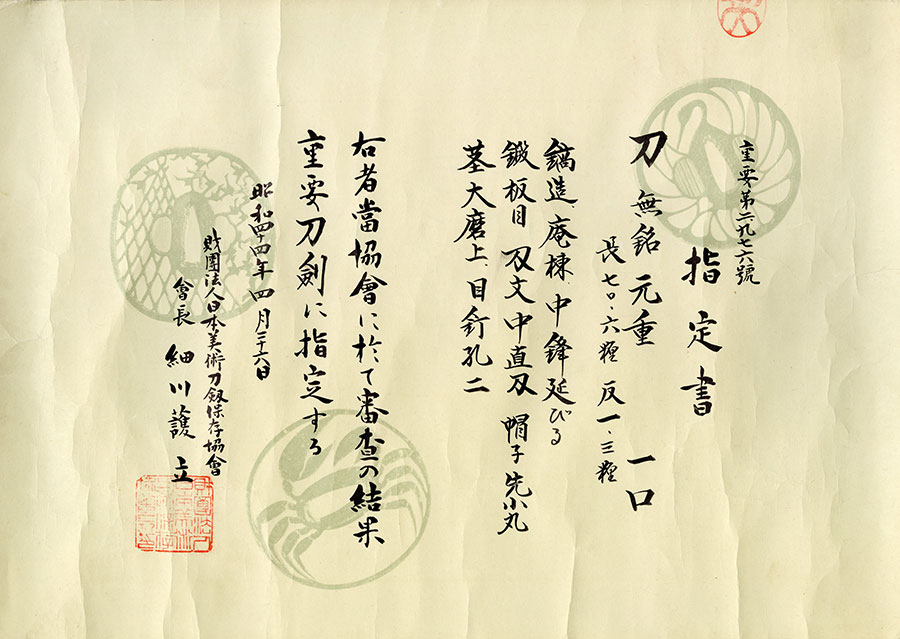 重要第二九七六號
指定書
刀 無銘 元重 一口
長 七〇・六糎 反 一・三糎
鎬造 庵棟 中鋒延びる
鍛 板目 刄文 中直刄 帽子 先小丸
茎 大磨上 目釘孔二
右者當協會に於て審査の結果
重要刀劍に指定する
昭和四十四年 四月二十六日
財團法人日本美術刀劔保存協會
會長 細川護立